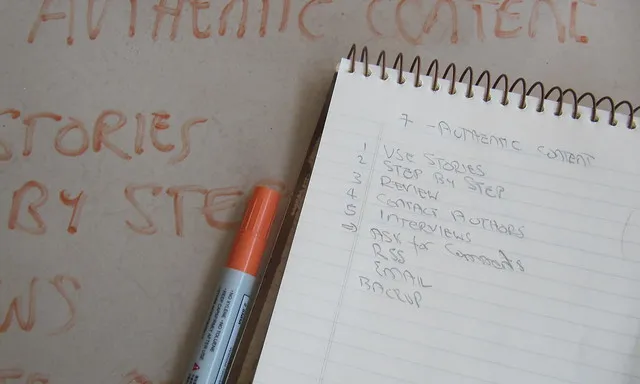 AUTHENTIC CONTENT
STORIES
BY STE
WS
7 - AUTHENTIC CONTENT
1 USE STORIES
2 STEP BY STEP
3 REVIEW
4 CONTACT AUTHORS
5 INTERVIEWS
ASK for Comments
RSS
EMAIL
BACKUP